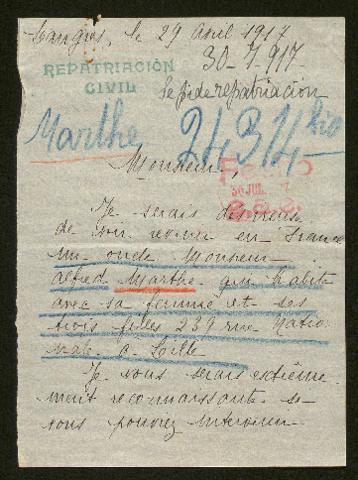 Langres, le 29 Avril 1917
30-7-917-
REPATRIACIÓN
CIVIL
Se pide repatriación
Marthe 24314
Monsieur,
30 JUL.
Je serais désireuse
de voir revenir en France
un oncle Monsieur
Alfred Marthe qui habite
avec sa femme et ses
trois filles 239 rue Natio
nale à Lille
Je vous serais extrême
ment reconnaissante si
vous pouvez intervenir